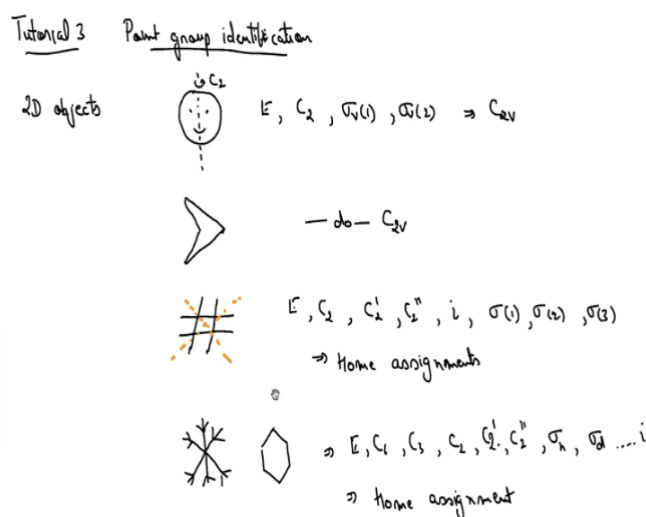 Tutorial 3 Point group identification
C₂
2D objects E, C₂, σᵥ(1), σᵥ(2) ⇒ C₂ᵥ
— do — C₂ᵥ
E, C₂, C₂', C₂'', i, σ(1), σ(2), σ(3)
⇒ Home assignments
⇒ E, C₆, C₃, C₂, C₂', C₂'', σₕ, σd .... i
⇒ Home assignment